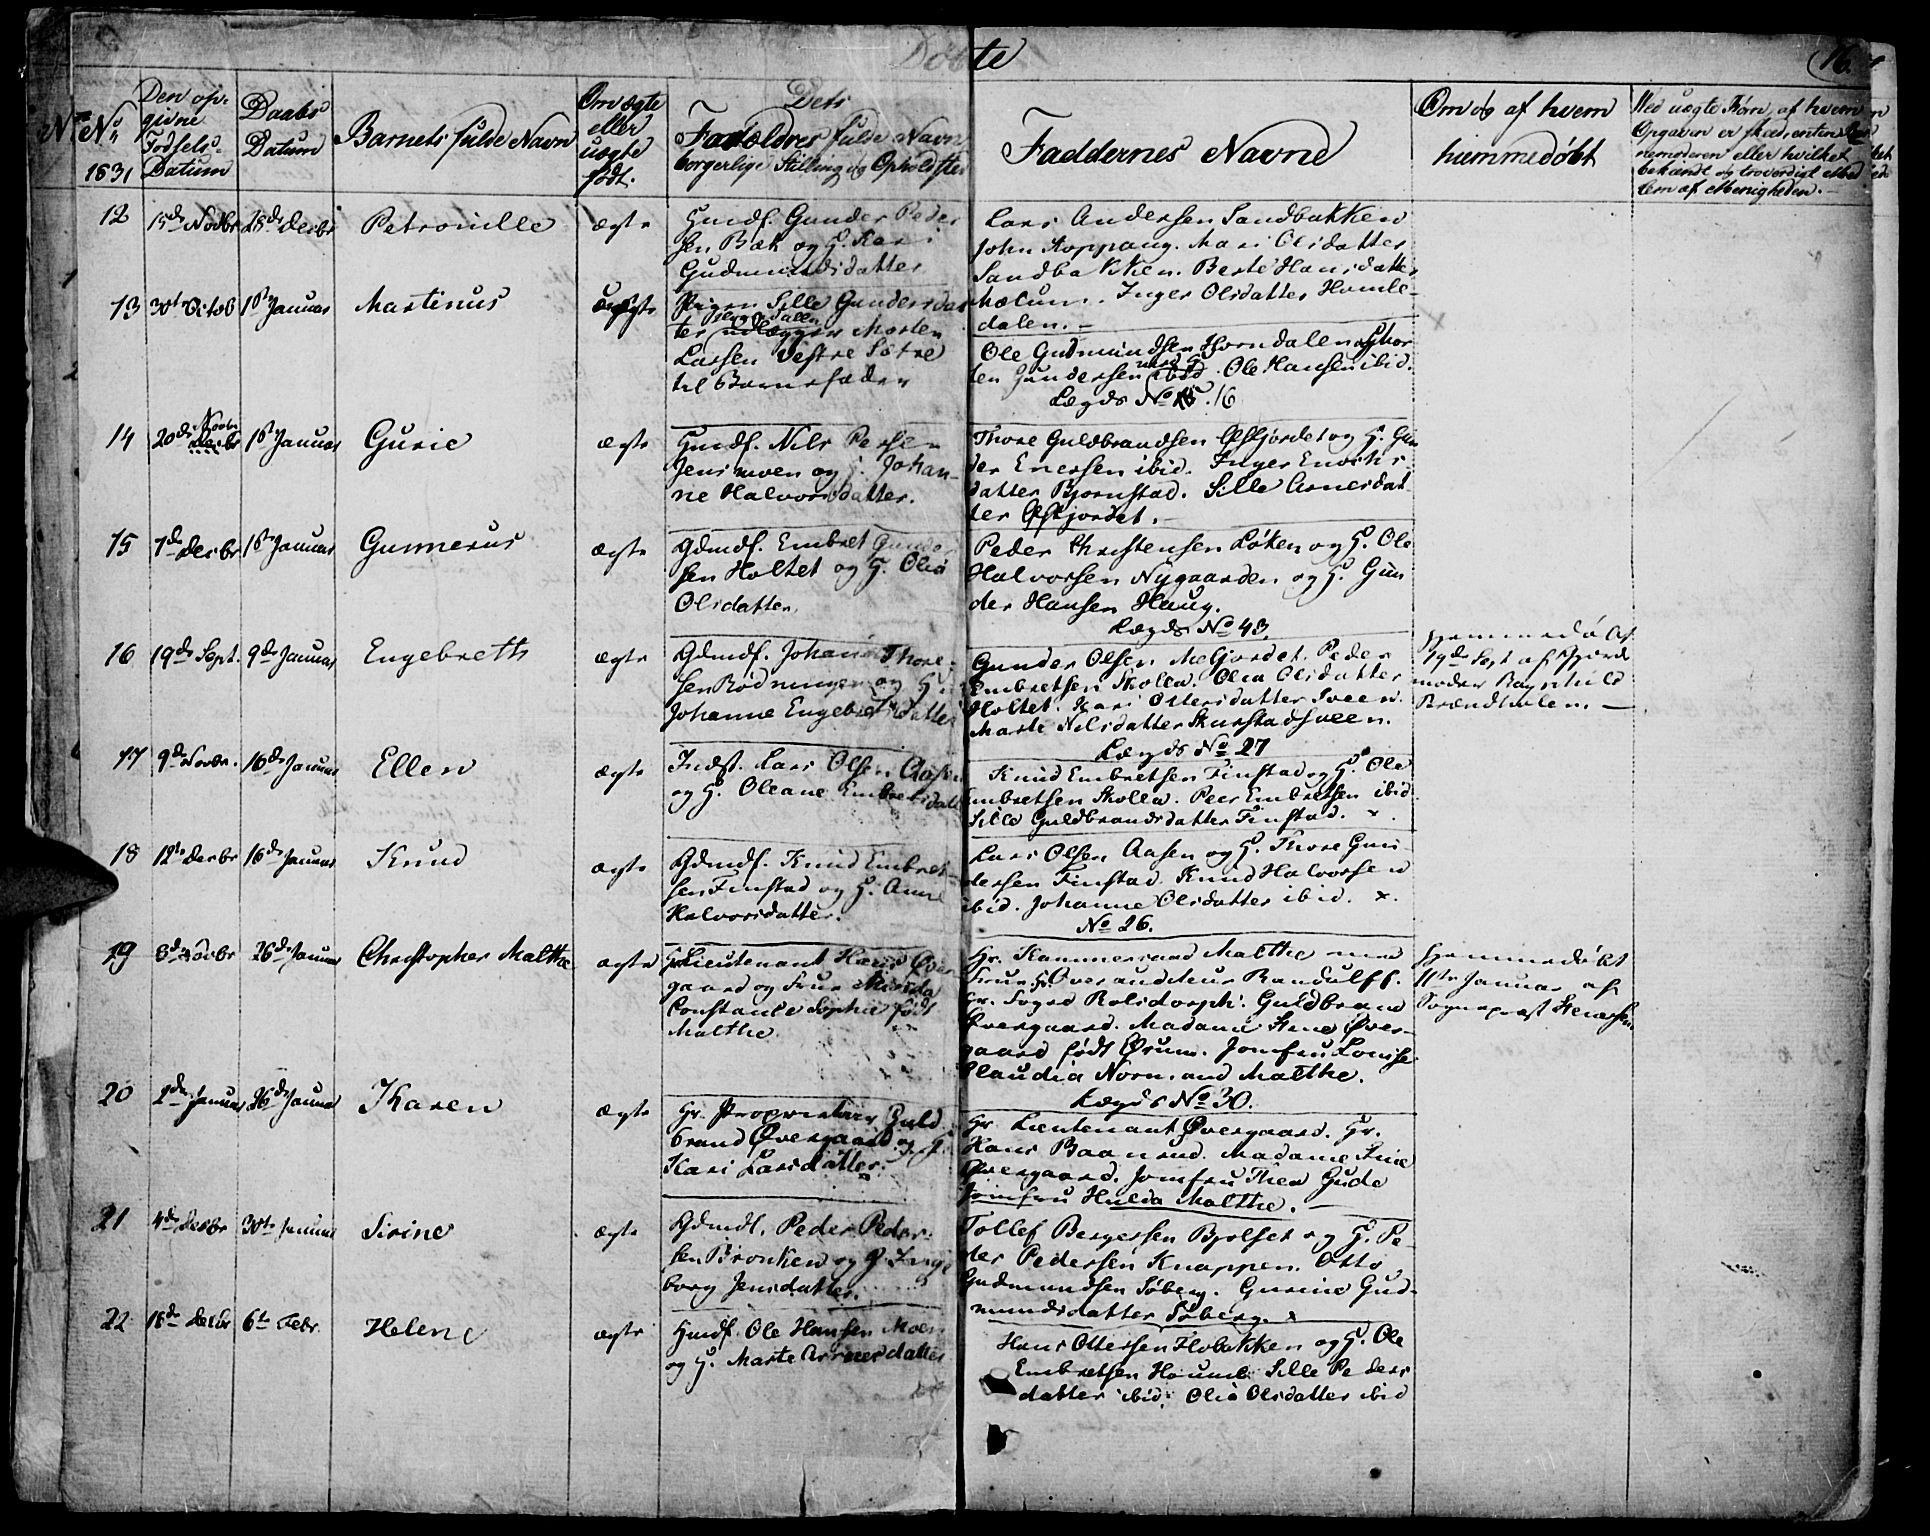 Døbte
16.
No
1831
Den op-
givne
Fødsels-
Datum
Daabs
Datum
Barnets fulde Navn
Om ægte
eller
uægte
født.
Dets
Forældres fulde Navn
borgerlige Stilling og Opholdsted
Faddernes Navne
Om og af hvem
hiemmedøbt
Ved uægte Børn, af hvem
Opgaven er skeed, enten
bekændt og troværdigt Med
lem af Menigheden.
12
15de Novbr
28de Decbr
Petronille
ægte
Huusmd. Gunder Peder
sen Bæk og H. Kari
Gudmundsdatter
Lars Andersen Sandbakken
John Koppang. Mari Olsdatter
Sandbakken. Berte Hansdatter
Mælum. Inger Olsdatter Homle-
dalen.
13
30te Octob
1ste Januar
Martinus
uægte
Pigen Sille Gundersdat
ter udlægger Morten
Larsen Vestre Sætre
til Barnefader
Ole Gudmundsen Horndalen og Mor
ten Gundersen ibid. Ole Hansen ibid.
Lægds No 16
14
20de Novbr
1ste Januar
Gurie
ægte
Huusmd. Nils Persen
Jensmoen og H. Johan-
ne Halvorsdatter.
Thore Guldbrandsen Øfstjordet og H. Gun
der Enersen ibid. Inger Enochs
datter Bjørnstad. Sille Arnesdat
ter Øfstjordet.
15
7de Decbr
1ste Januar
Gunnerus
ægte
Gdmd. Embret Gunder
sen Holtet og H. Olia
Olsdatter.
Peder Christensen Løken og H. Ole
Halvorsen Nygaarden og H. Gun
der Hansen Haug.
Lægds No 43.
16
19de Sept.
9de Januar
Engebreth
ægte
Gdmd. Johan Thore-
sen Rødningen og H.
Johanne Engebretsdatter
Gunder Olsen Meljordet. Peder
Embretsen Skolla. Olia Olsdatter
Holtet. Kari Ottersdatter Sveen.
Marte Nilsdatter Skurstadsveen.
Lægds No 27
Hjemmedøbt
19de Sept af Gjord
moder Ragnhild
Brændholen.
17
9de Novbr.
16de Januar
Ellen
ægte
Indst. Lars Olsen Aasen
og H. Oleane Embretsdatt
Knud Embretsen Finstad og H. Ole
Embretsen Skolla. Peer Embretsen ibid
Sille Guldbrandsdatter Finstad. x.
18
12te Decbr
16de Januar
Knud
ægte
Gdmd. Knud Embret
sen Finstad og H. Anne
Halvorsdatter.
Lars Olsen Aasen og H. Thore Gun
dersen Finstad Knud Halvorsen
ibid. Johanne Olsdatter ibid. x.
No 26.
19
8de Novbr
26de Januar
Christopher Malthe
ægte
Hr Lieutenant Hans Øver
gaard og Frue
Constance Sophie født
Malthe.
Hr. Kammerraad Malthe med
Frue. Hr. Overauditeur Randulff.
Hr. Foged Rolsdorph. Guldbrand
Øvergaard. Madame Stine Øver-
gaard født Ørum. Jomfru Louise
Claudia Normand Malthe.
Lægds No 30.
Hjemmedøbt
11te Januar af
Sognepræst
20
2den Januar
26de Januar
Karen
ægte
Hr. Proprietair Guld
brand Øvergaard og H.
Kari Larsdatter.
Hr. Lieutenant Øvergaard. Hr.
Hans Baanrud. Madame Stine
Øvergaard. Jomfru Thea Gude
Jomfru Hulda Malthe.
21
4de Decbr
30te Januar
Sirine
ægte
Gdmd. Peder Peder-
sen Bronken og H. Inge
borg Jensdatter.
Tollef Bergersen Bjølset og H. Pe-
der Pedersen Knappen. Otto
Gudmundsen Søberg. Gurine Gud-
mundsdatter Søberg. x
22
18de Decbr
6te Febr.
Helene
ægte
Huusmd. Ole Hansen Moen
og H. Marte Arnesdatter
Hans Ottersen Flobakken og H. Ole
Embretsen Houmb. Sille Peders
datter ibid. Olia Olsdatter ibid